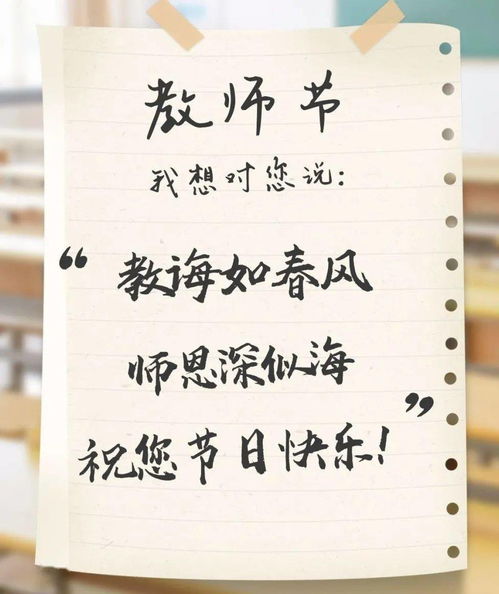 教师节
我想对您说：
“教诲如春风
师恩深似海
祝您节日快乐！”